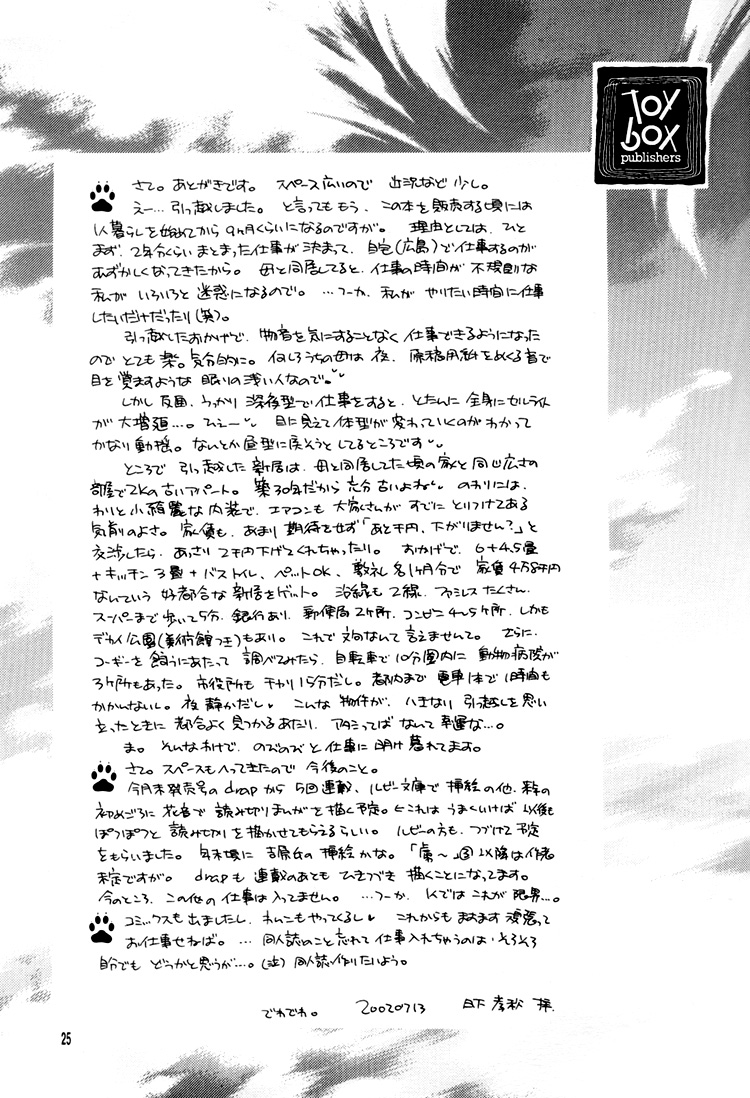 TOY
box
publishers
さて。あとがきです。スペース広いので 近況など少し。
えー…引っ越しました。と言ってももう、この本を販売する頃には
1人暮らしを始めてから9ヶ月くらいになるのですが。理由としては、ひと
まず、2年分くらいまとまった仕事が決まって、自宅(広島)で仕事するのが
むずかしくなってきたから。母と同居してると、仕事の時間が不規則な
私が いろいろと迷惑になるので。…つーか、私が やりたい時間に仕事
したいだけだったり(笑)。
引っ越したおかげで、物音を気にすることなく仕事できるようになった
ので とても楽。気分的に。何しろうちの母は夜、原稿用紙をめくる音で
目を覚ますような 眠りの浅い人なので。
しかし反面、うっかり深夜型で仕事をすると、とたんに全身にセルライト
が大増殖…。ひえー 目に見えて体型が変わっていくのがわかって
かなり動揺。なんとか昼型に戻そうとしてるところです
ところで 引っ越した新居は、母と同居してた頃の家と同じ広さの
部屋で2Kの古いアパート。築30年だから充分古いよね のわりには、
わりと小綺麗な内装で、エアコンも大家さんがすでにとりつけてある
気前のよさ。家賃も、あまり期待をせず「あと千円、下がりません?」と
交渉したら、あっさり2千円下げてくれちゃったり。おかげで、6+4.5畳
+キッチン3畳+バストイレ、ペットOK、敷礼各1ヶ月分で 家賃4万8千円
なんていう 好都合な新居をゲット。沿線も2線、ファミレスたくさん、
スーパーまで歩いて5分、銀行あり、郵便局2ヶ所、コンビニ4〜5ヶ所、しかも
デカイ公園(美術館つき)もあり。これで文句なんて言えませんて。さらに、
コーギーを飼うにあたって 調べてみたら、自転車で10分圏内に 動物病院が
3ヶ所もあった。市役所もチャリ15分だし。都内まで電車1本で1時間も
かかんないし。夜静かだし こんな物件が、いきなり引っ越しを思い
立ったときに 都合よく見つかるあたり、アタシってばなんて幸運な…。
ま。そんなわけで、のびのびと仕事に明け暮れてます。
さて。スペースもへってきたので 今後のこと。
今月末発売号のdrapから5回連載、ルビー文庫で挿絵の他、秋の
初めごろに花音で読み切りまんがを描く予定。←これは うまくいけば 以後も
ぽつぽつと 読み切りを描かせてもらえるらしい。ルビーの方も、つづけて予定
をもらいました。年末頃に 吉原氏の挿絵かな。「虜〜」③以降は作者
未定ですが。drapも連載のあとも ひきつづき描くことになってます。
今のところ、この他の仕事は入ってません。…つーか、Kではこれが限界…。
コミックスも出ましたし、わんこもやってくるし これからもますます頑張って
お仕事せねば。…同人誌のこと忘れて仕事入れちゃうのは、そろそろ
自分でも どうかと思うが…。(泣)同人誌、作りたいよう。
でわでわ。 20020713 日下孝秋 拝.
25